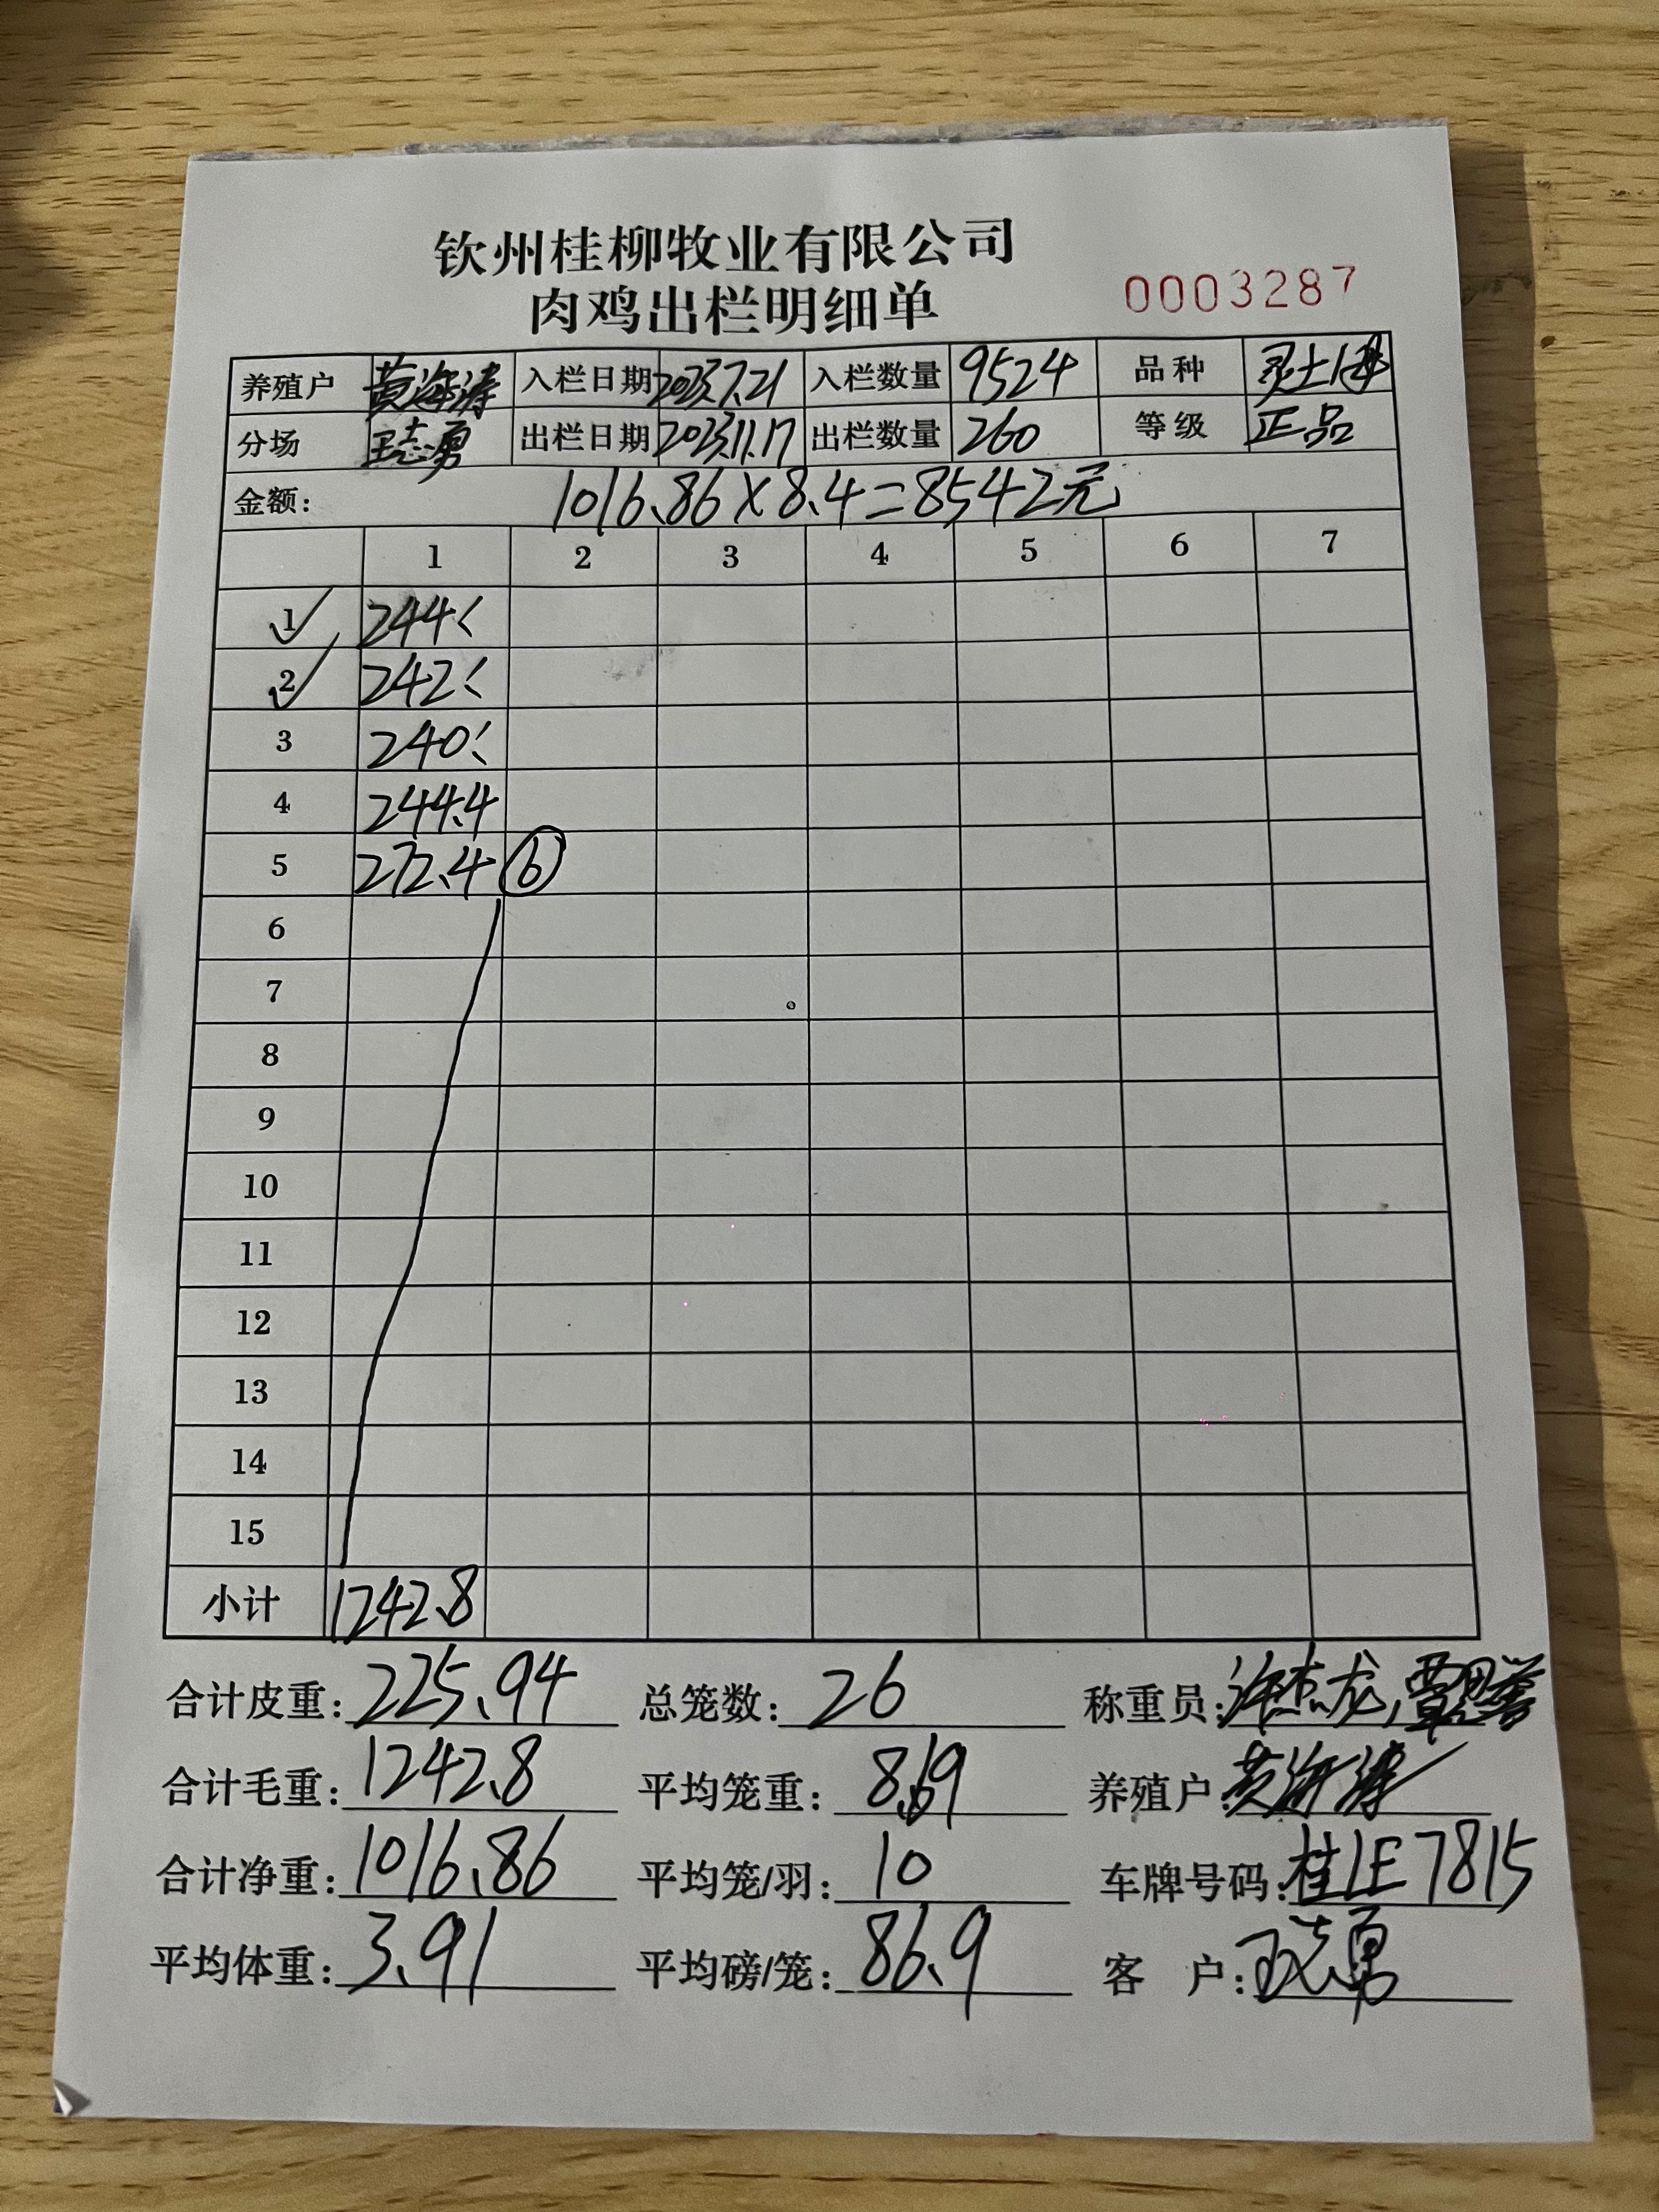 钦州桂柳牧业有限公司
肉鸡出栏明细单
0003287
养殖户 黄海涛 入栏日期 2023.7.21 入栏数量 9524 品种 灵土1
分场 王志勇 出栏日期 2023.11.17 出栏数量 260 等级 正品
金额: 1016.86×8.4=8542元
1 2 3 4 5 6 7
1 244
2 242
3 240
4 244.4
5 272.4 6
6
7
8
9
10
11
12
13
14
15
小计 1242.8
合计皮重: 225.94 总笼数: 26 称重员: 许杰龙,
合计毛重: 1242.8 平均笼重: 8.69 养殖户: 黄海涛
合计净重: 1016.86 平均笼/羽: 10 车牌号码: 桂E7815
平均体重: 3.91 平均磅/笼: 86.9 客户: 王志勇